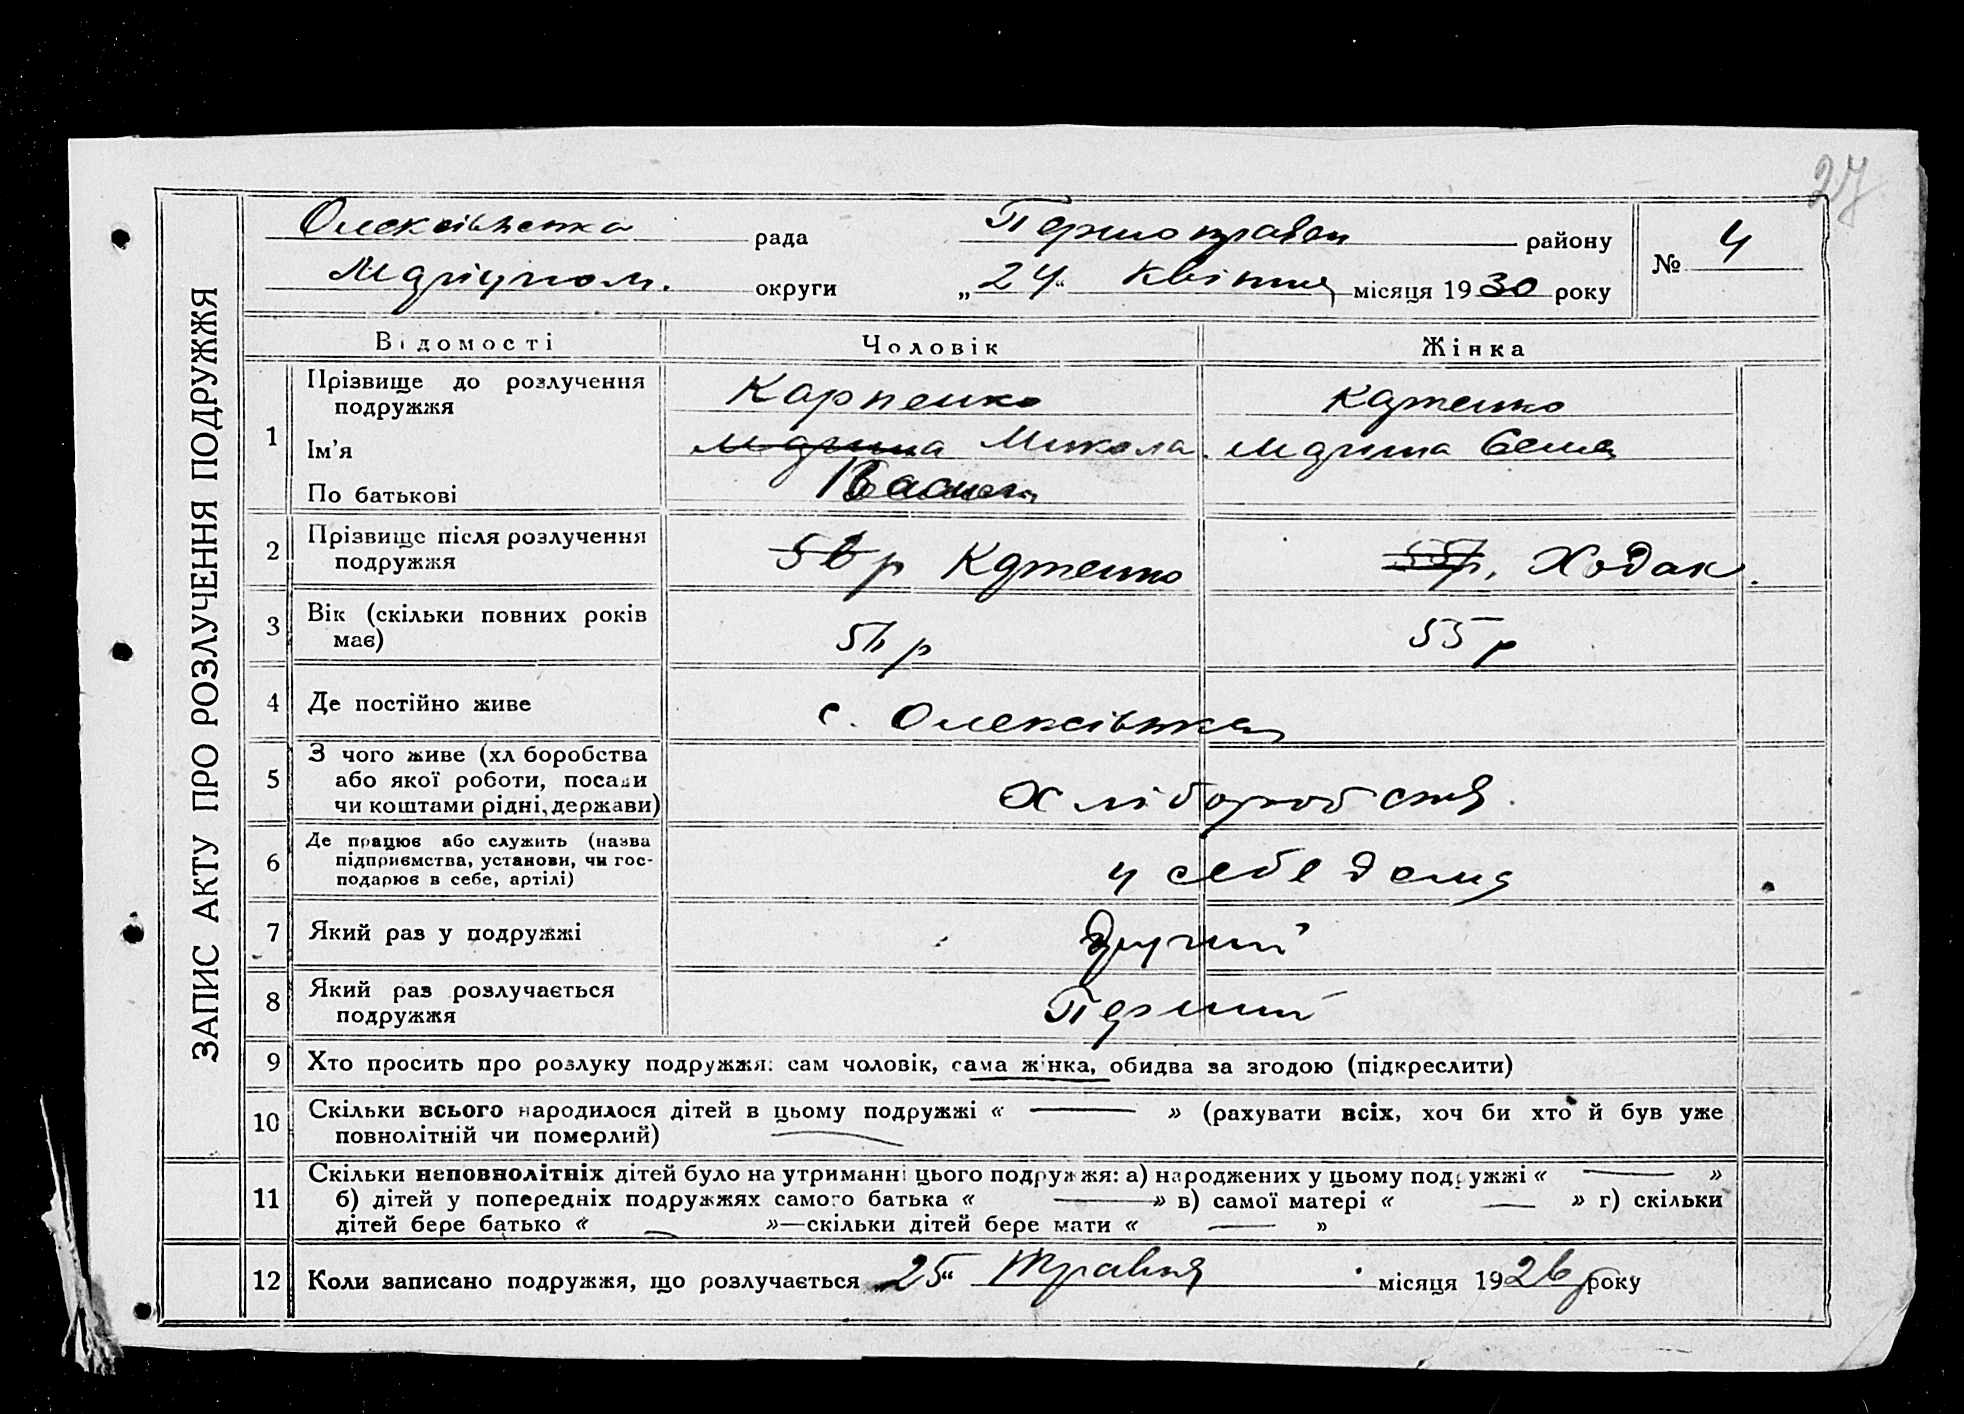 27
ЗАПИС АКТУ ПРО РОЗЛУЧЕННЯ ПОДРУЖЖЯ
Олексіївська рада Першотравен району № 4
Маріупол. округи „24“ Квітня місяця 1930 року
Відомості Чоловік Жінка
1 Прізвище до розлучення подружжя Карпенко Карпенко
Ім'я Марина Микола Марина
По батькові
2 Прізвище після розлучення подружжя 56р Карпенко 55р, Ходак.
3 Вік (скільки повних років має) 56р 55р
4 Де постійно живе с. Олексіївка
5 З чого живе (хл боробства або якої роботи, посади чи коштами рідні, держави) Хліборобства
6 Де працює або служить (назва підприємства, установи, чи господарює в себе, артілі) у себе дома
7 Який раз у подружжі Другий
8 Який раз розлучається подружжя Перший
9 Хто просить про розлуку подружжя: сам чоловік, сама жінка, обидва за згодою (підкреслити)
10 Скільки всього народилося дітей в цьому подружжі « — » (рахувати всіх, хоч би хто й був уже
повнолітній чи померлий)
11 Скільки неповнолітніх дітей було на утриманні цього подружжя: а) народжених у цьому подружжі « — »
б) дітей у попередніх подружжях самого батька « — » в) самої матері « — » г) скільки
дітей бере батько « — »—скільки дітей бере мати « — »
12 Коли записано подружжя, що розлучається „25“ Травня місяця 1926 року